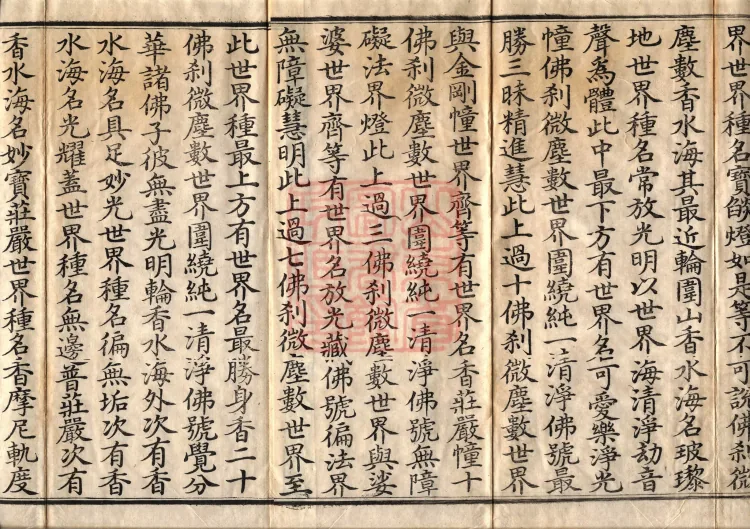 界世界種名寶燄燈如是等不可說佛刹微
塵數香水海其最近輪圍山香水海名玻瓈
地世界種名常放光明以世界海清淨劫音
聲爲體此中最下方有世界名可愛樂淨光
幢佛刹微塵數世界圍繞純一清淨佛號最
勝三昧精進慧此上過十佛刹微塵數世界
與金剛幢世界齊等有世界名香莊嚴幢十
佛刹微塵數世界圍繞純一清淨佛號無障
礙法界燈此上過三佛刹微塵數世界與娑
婆世界齊等有世界名放光藏佛號徧法界
無障礙慧明此上過七佛刹微塵數世界至
此世界種最上方有世界名最勝身香二十
佛刹微塵數世界圍繞純一清淨佛號覺分
華諸佛子彼無盡光明輪香水海外次有香
水海名具足妙光世界種名徧無垢次有香
水海名光耀蓋世界種名無邊普莊嚴次有
香水海名妙寶莊嚴世界種名香摩尼軌度